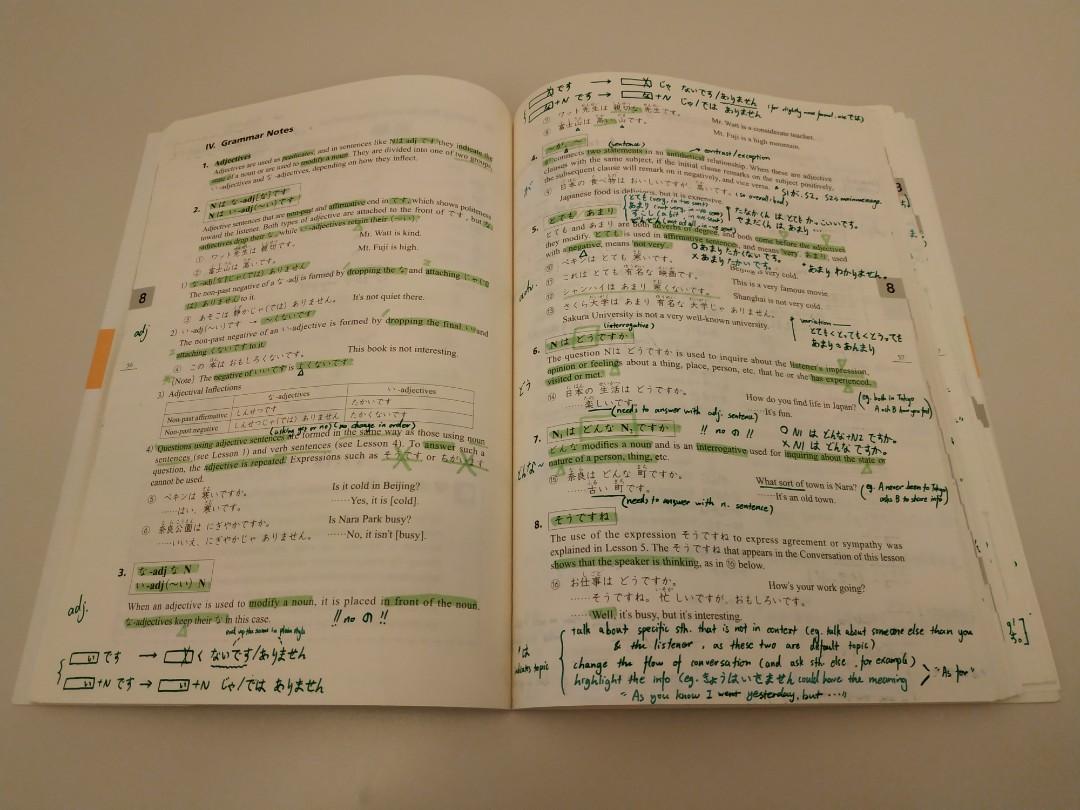 IV. Grammar Notes
1. Adjectives
Adjectives are used as predicates, and in sentences like Nは adj です they indicate the
state of a noun or are used to modify a noun. They are divided into one of two groups,
い-adjectives and な-adjectives, depending on how they inflect.
2. Nは な-adj[な]です
Nは い-adj(〜い)です
Adjective sentences that are non-past and affirmative end in です, which shows politeness
toward the listener. Both types of adjective are attached to the front of です, but な-
adjectives drop their な, while い-adjectives retain their (〜い).
① ワット先生は 親切です。 Mr. Watt is kind.
② 富士山は 高いです。 Mt. Fuji is high.
1) な-adj[な]じゃ(では) ありません
The non-past negative of a な-adj is formed by dropping the な and attaching じゃ(で
は) ありません to it.
③ あそこは 静かじゃ(では) ありません。 It's not quiet there.
2) い-adj(〜い)です → 〜くないです
The non-past negative of an い-adjective is formed by dropping the final い and
attaching くないです to it.
④ この 本は おもしろくないです。 This book is not interesting.
[Note] The negative of いいです is よくないです
3) Adjectival Inflections
な-adjectives い-adjectives
Non-past affirmative しんせつです たかいです
Non-past negative しんせつじゃ(では) ありません たかくないです
(asking yes or no) (no change in order)
4) Questions using adjective sentences are formed in the same way as those using noun
sentences (see Lesson 1) and verb sentences (see Lesson 4). To answer such a
question, the adjective is repeated. Expressions such as そうです or ちがいます
cannot be used.
⑤ ペキンは 寒いですか。 Is it cold in Beijing?
……はい、寒いです。 ……Yes, it is [cold].
⑥ 奈良公園は にぎやかですか。 Is Nara Park busy?
……いいえ、にぎやかじゃ ありません。 ……No, it isn't [busy].
3. な-adj な N
い-adj(〜い) N
When an adjective is used to modify a noun, it is placed in front of the noun.
な-adjectives keep their な in this case.
!! no の !!
end up the same in plain style
い です → い く ないです/ありません
い +N です → い +N じゃ/では ありません
8
adj
adj.
56
な です → な じゃ ないです/ありません
な +N です → な +N じゃ/では ありません (for slightly more formal, use では)
⑦ ワット先生は 親切な 先生です。 Mr. Watt is a considerate teacher.
⑧ 富士山は 高い 山です。 Mt. Fuji is a high mountain.
4. 〜が、〜
(sentence) → contrast/exception
が connects two statements in an antithetical relationship. When these are adjective
clauses with the same subject, if the initial clause remarks on the subject positively,
the subsequent clause will remark on it negatively, and vice versa.
* S1が、S2。 S2 = main message.
⑨ 日本の 食べ物は おいしいですが、高いです。 (so overall: bad)
Japanese food is delicious, but it is expensive.
5. とても あまり
たなかくんは とても かっこいいです。
やまだくんは あまり …
とても and あまり are both adverbs of degree, and both come before the adjectives
they modify. とても is used in affirmative sentences, and means 'very'. あまり, used
with a negative, means 'not very'.
○ あまり たかくないです。
× あまり たかいです。
* あまり わかりません。
⑩ ペキンは とても 寒いです。 Beijing is very cold.
⑪ これは とても 有名な 映画です。 This is a very famous movie.
⑫ シャンハイは あまり 寒くないです。 Shanghai is not very cold.
⑬ さくら大学は あまり 有名な 大学じゃ ありません。
Sakura University is not a very well-known university.
variation
とても < とっても
あまり ≈ あんまり
(interrogative)
6. Nは どうですか
The question Nは どうですか is used to inquire about the listener's impression,
opinion or feelings about a thing, place, person, etc. that he or she has experienced,
visited or met.
⑭ 日本の 生活は どうですか。 How do you find life in Japan?
……楽しいです。 ……It's fun.
(needs to answer with adj. sentence)
(eg. both in Tokyo
A ask B how you feel)
7. N₁は どんな N₂ですか !! no の !!
○ N1は どんな+N2 ですか。
× N1は どんな ですか。
どんな modifies a noun and is an interrogative used for inquiring about the state or
nature of a person, thing, etc.
⑮ 奈良は どんな 町ですか。 What sort of town is Nara?
……古い 町です。 ……It's an old town.
(needs to answer with n. sentence)
(eg. A never been to Tokyo
asks B to share info)
8. そうですね
The use of the expression そうですね to express agreement or sympathy was
explained in Lesson 5. The そうですね that appears in the Conversation of this lesson
shows that the speaker is thinking, as in ⑯ below.
⑯ お仕事は どうですか。 How's your work going?
……そうですね。忙しいですが、おもしろいです。
……Well, it's busy, but it's interesting.
talk about specific sth. that is not in context (eg. talk about someone else than you
& the listener, as these two are default topic)
change the flow of conversation (and ask sth else, for example)
highlight the info (eg. きょうは いきません could have the meaning
"As you know I went yesterday, but …")
"As for"
indicates topic
が
adv.
どう
どんな〜
8
57